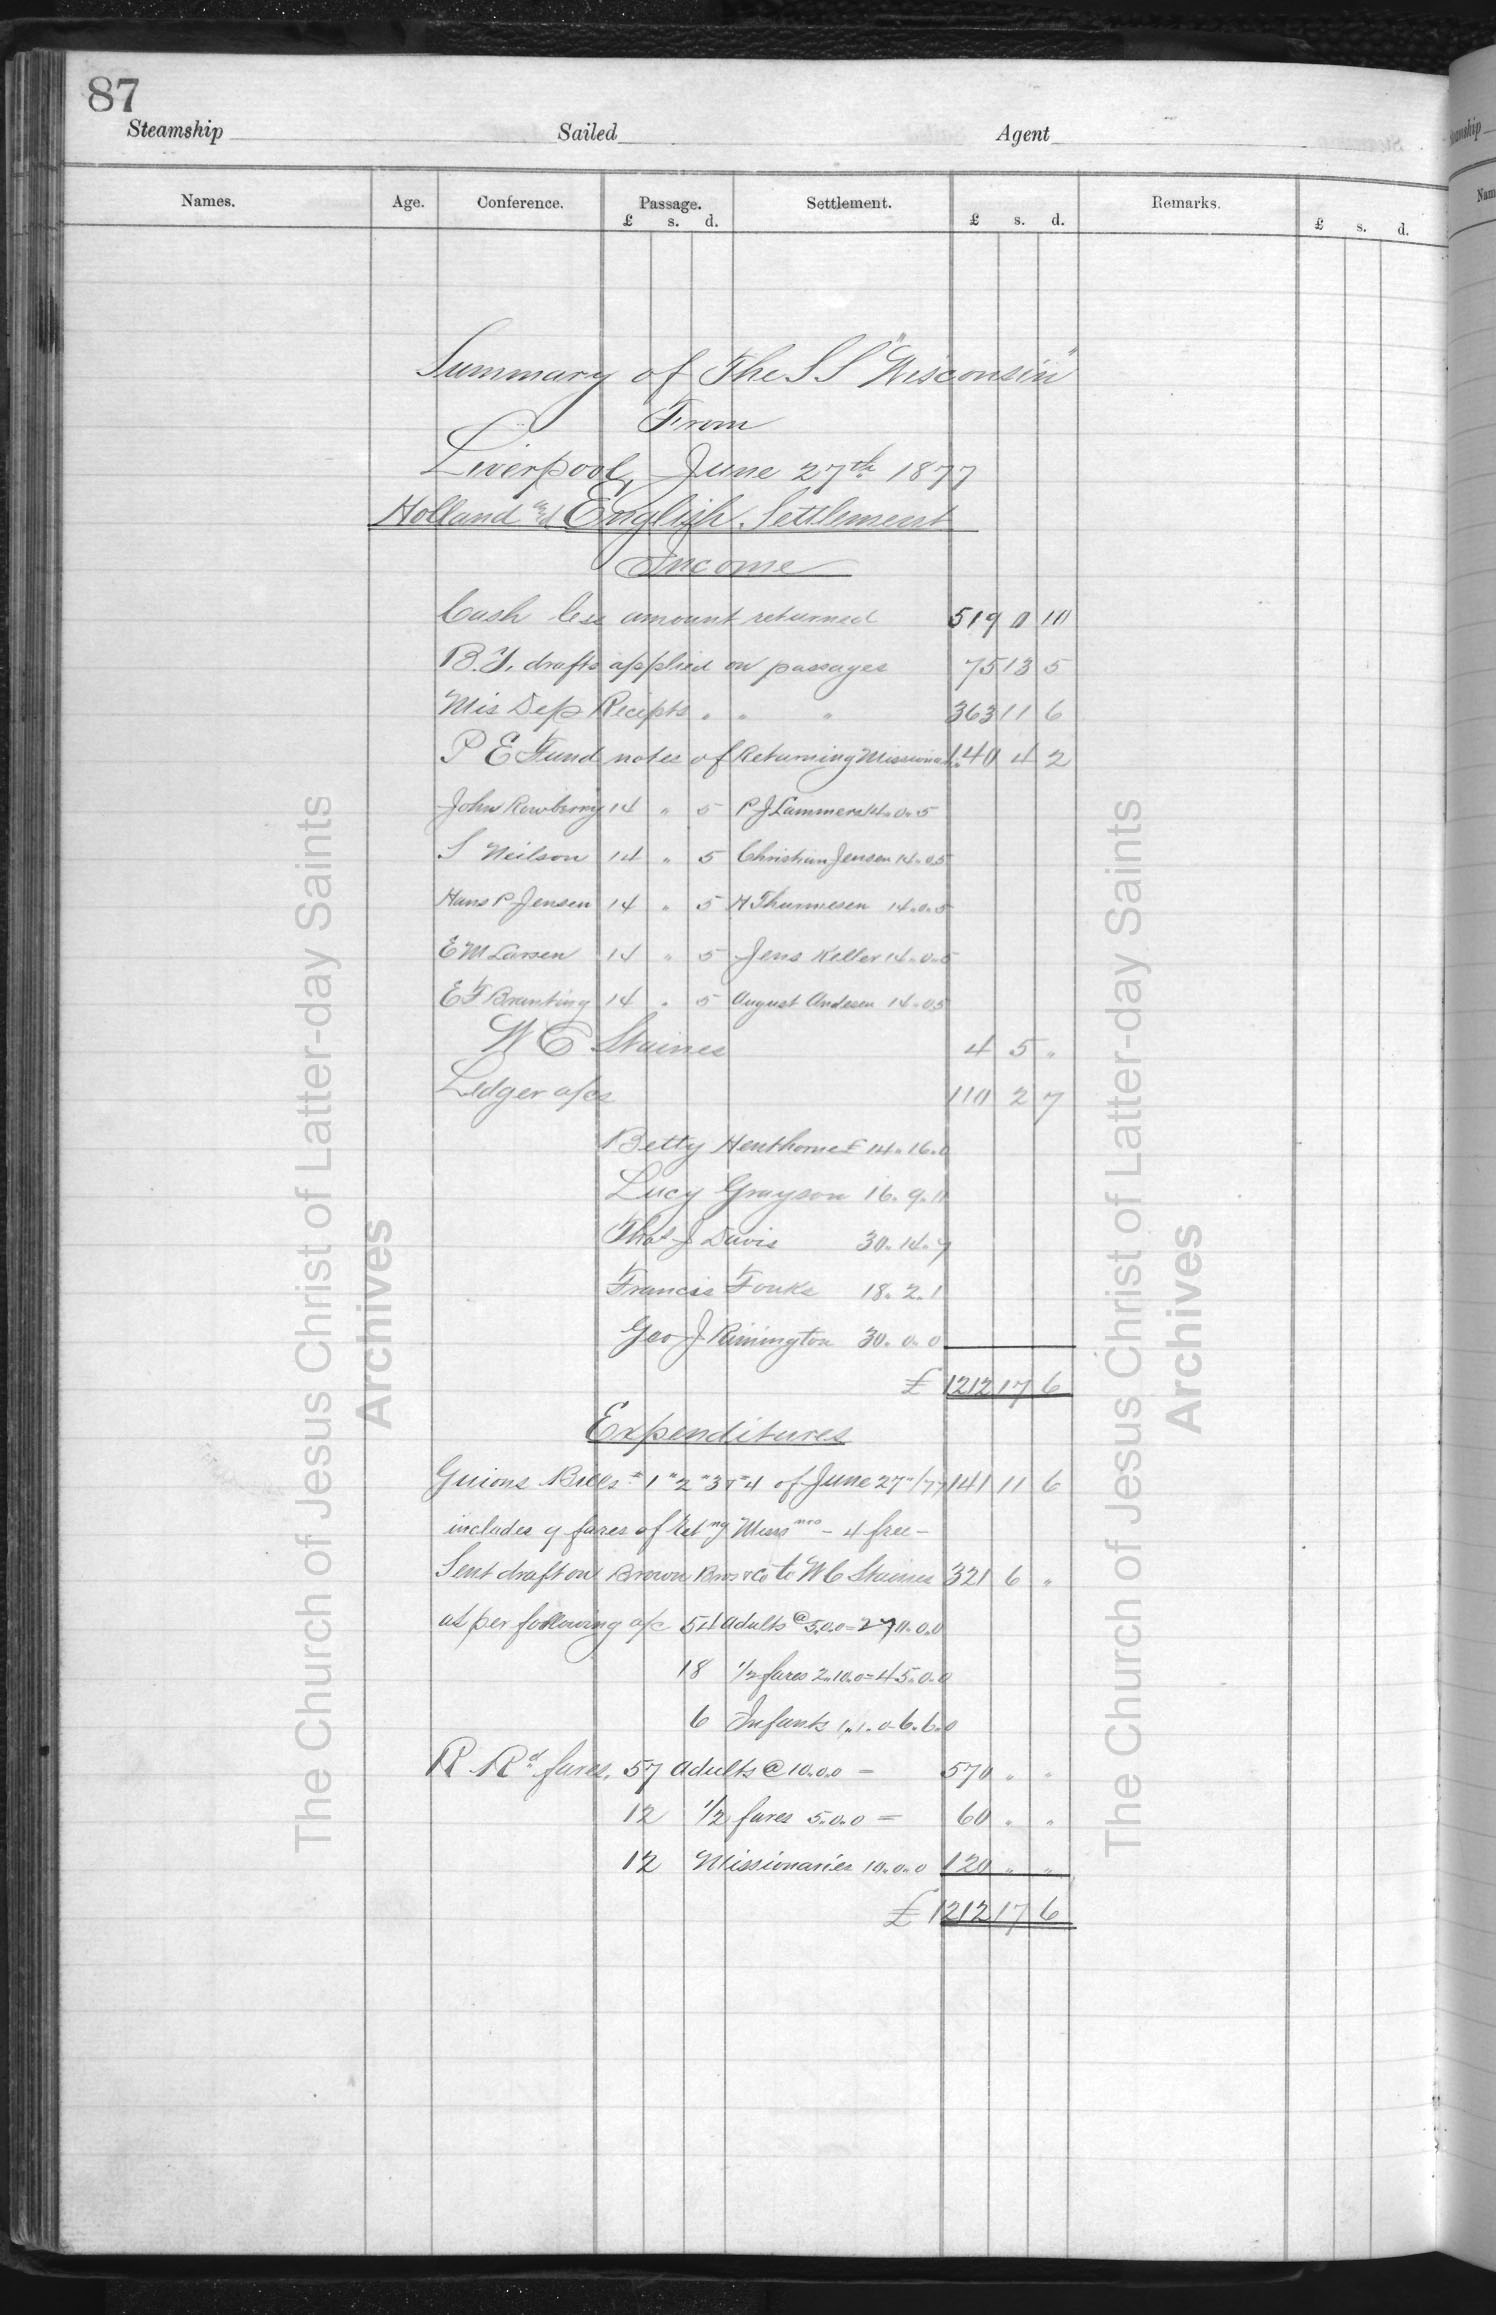 87
Steamship Sailed Agent
Names. Age. Conference. Passage. Settlement. Remarks.
£ s. d. £ s. d. £ s. d.
Summary of The S S "Wisconsin"
From
Liverpool, June 27th 1877
Holland and English Settlement
Income
Cash less amount returned 519 0 10
B.Y. drafts applied on passages 75 13 5
Mis Dep Recipts " " " 363 11 6
P E Fund notes of Returning Mission 140 4 2
John Rowberry 14 " 5 P J Lammers 14.0.5
S Neilson 14 " 5 Christian Jensen 14.0.5
Hans P Jensen 14 " 5 H Thunnesen 14.0.5
E M Larsen 14 " 5 Jens Keller 14.0.5
E F Branting 14 " 5 August Andesen 14.0.5
W C Staines 4 5 "
Ledger a/cs 110 2 7
Betty Henthorne £14.16.0
Lucy Grayson 16.9.11
Thos J Davis 30.14.7
Francis Fouks 18.2.1
Geo J Rimington 30.0.0
£ 1212 17 6
Expenditures
Guions Bills #1 "2 "3 & "4 of June 27"/77 141 11 6
includes 9 fares of Retng Miss - 4 free -
Sent draft on Brown Bros & Co to W C Staines 321 6 "
as per following a/c 54 adults @ 5.0.0 = 270.0.0
18 1/2 fares 2.10.0 = 45.0.0
6 Infants 1.1.0 - 6.6.0
R Rd fares. 57 adults @ 10.0.0 = 570 " "
12 1/2 fares 5.0.0 = 60 " "
12 Missionaries 10.0.0 120 " "
£ 1212 17 6
The Church of Jesus Christ of Latter-day Saints
Archives
The Church of Jesus Christ of Latter-day Saints
Archives